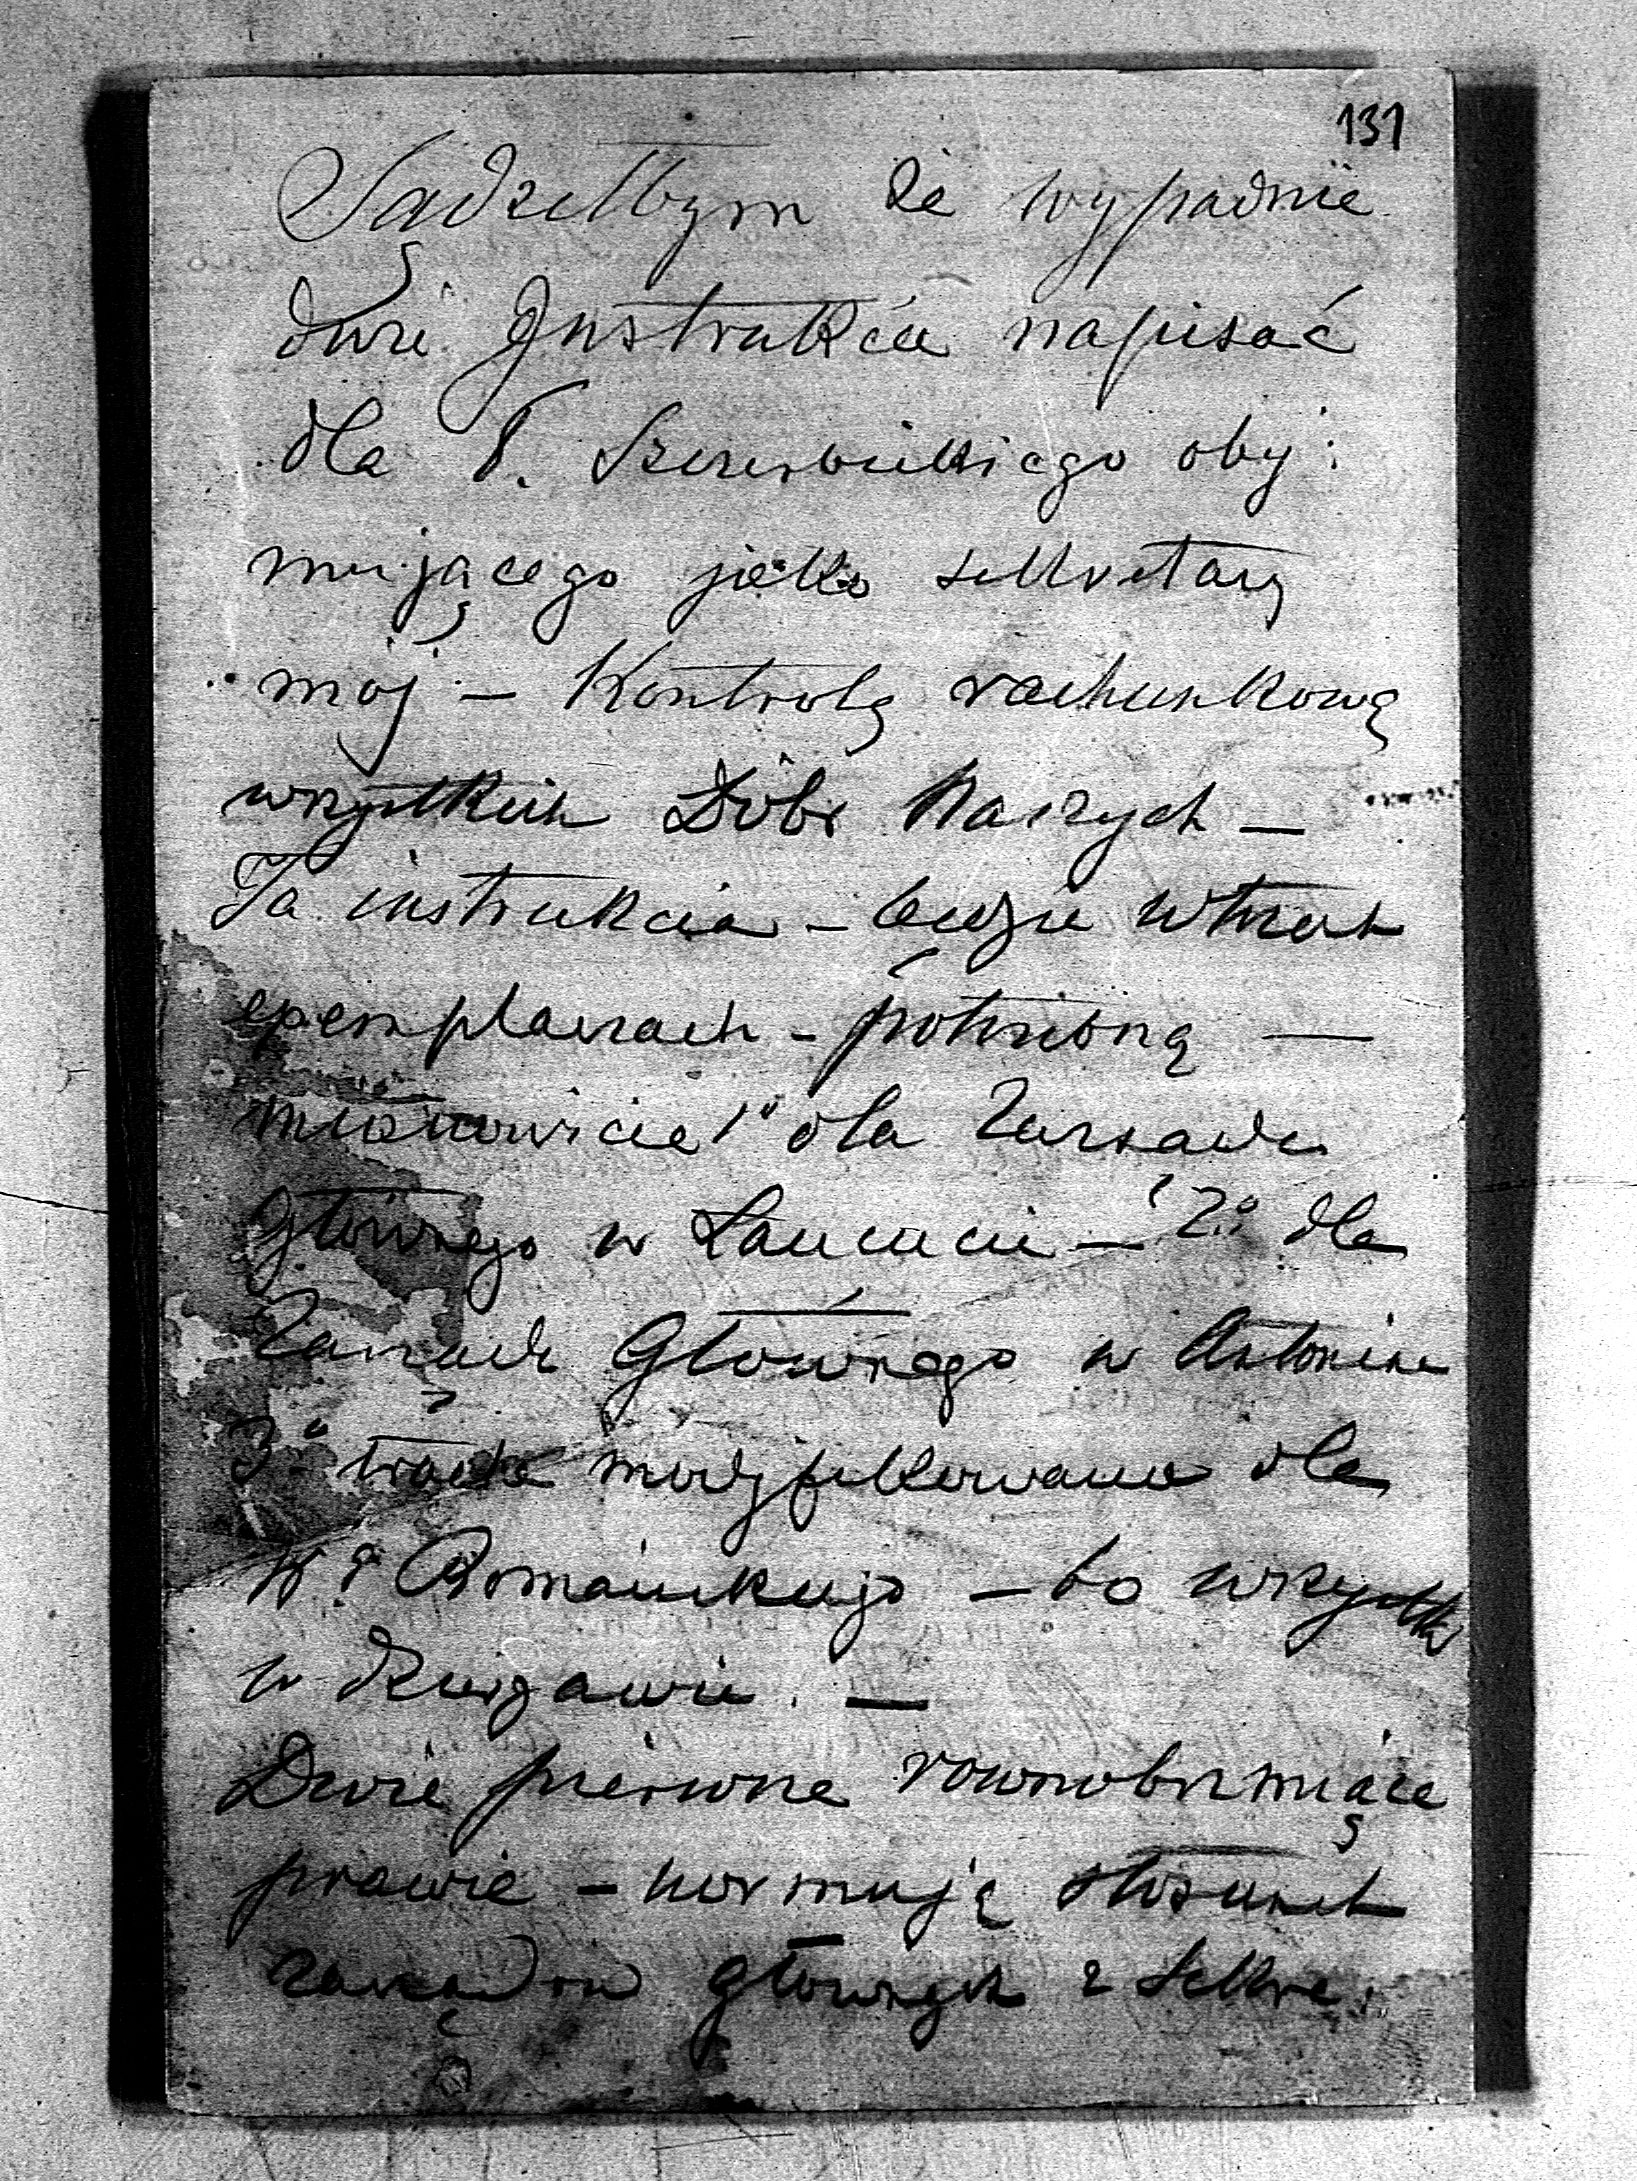 131
Sądzełbym że wypadnie
dwie Instrukcie napisać
dla P. obej:
mującego jako sekretarz
mój – Kontrolę rachunkową
wszystkich Dóbr Naszych –
Ta instrukcia – będzie w trzech
exemplarzach – potrzebną —
mianowicie 1º dla Zarządu
Głównego w Łańcucie – 2º dla
Zarządu Głównego w Antoninie
3º trochę modyfikowana dla
Wº – to wszystko
w Dzierżawie. —
Dwie pierwsze równobrzmiące
prawie – normują stosunek
zarządów głównych z Sekre: